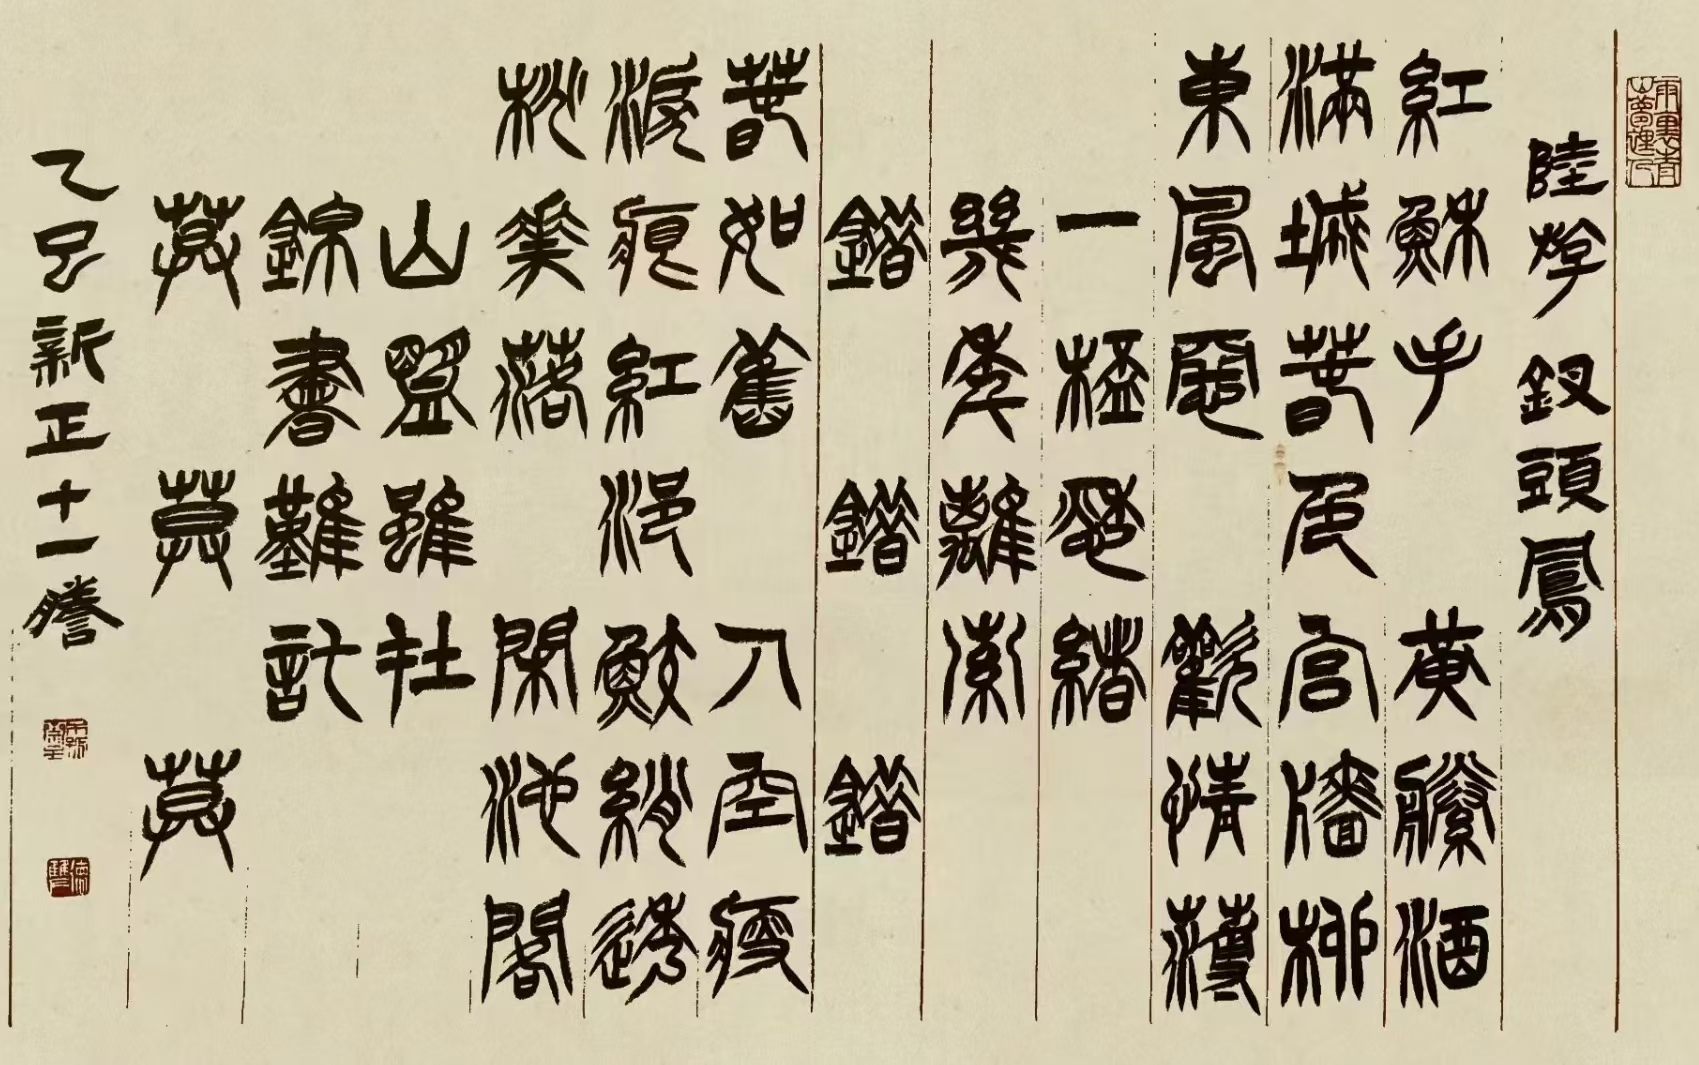 雨裏青山夢裡人
陸游 釵頭鳳
紅酥手 黃縢酒
滿城春色宮牆柳
東風惡 歡情薄
一杯愁緒
幾年離索
錯 錯 錯
春如舊 人空瘦
淚痕紅浥鮫綃透
桃花落 閑池閣
山盟雖在
錦書難託
莫 莫 莫
乙巳新正十一謄